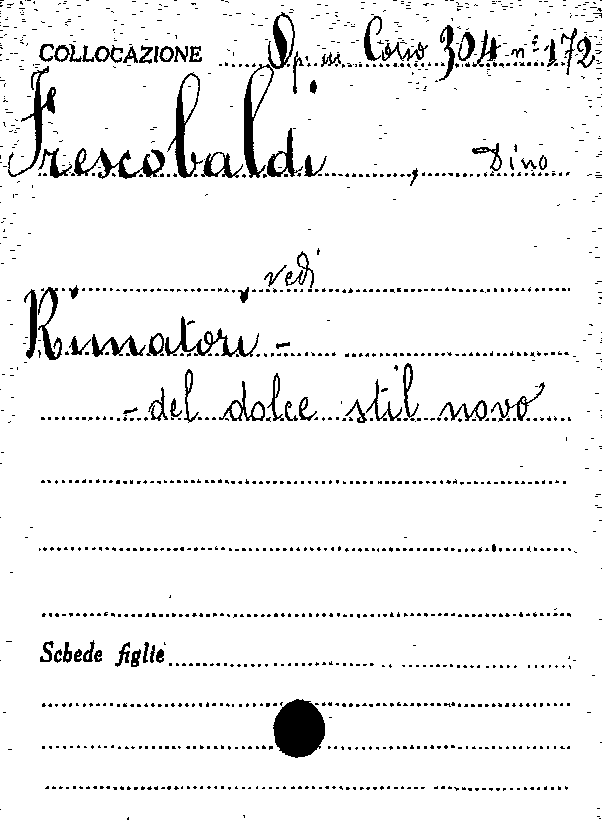 COLLOCAZIONE Op. in Corso 304 n.° 172
Frescobaldi, Dino
vedi
Rimatori -
- del dolce stil novo
Schede figlie